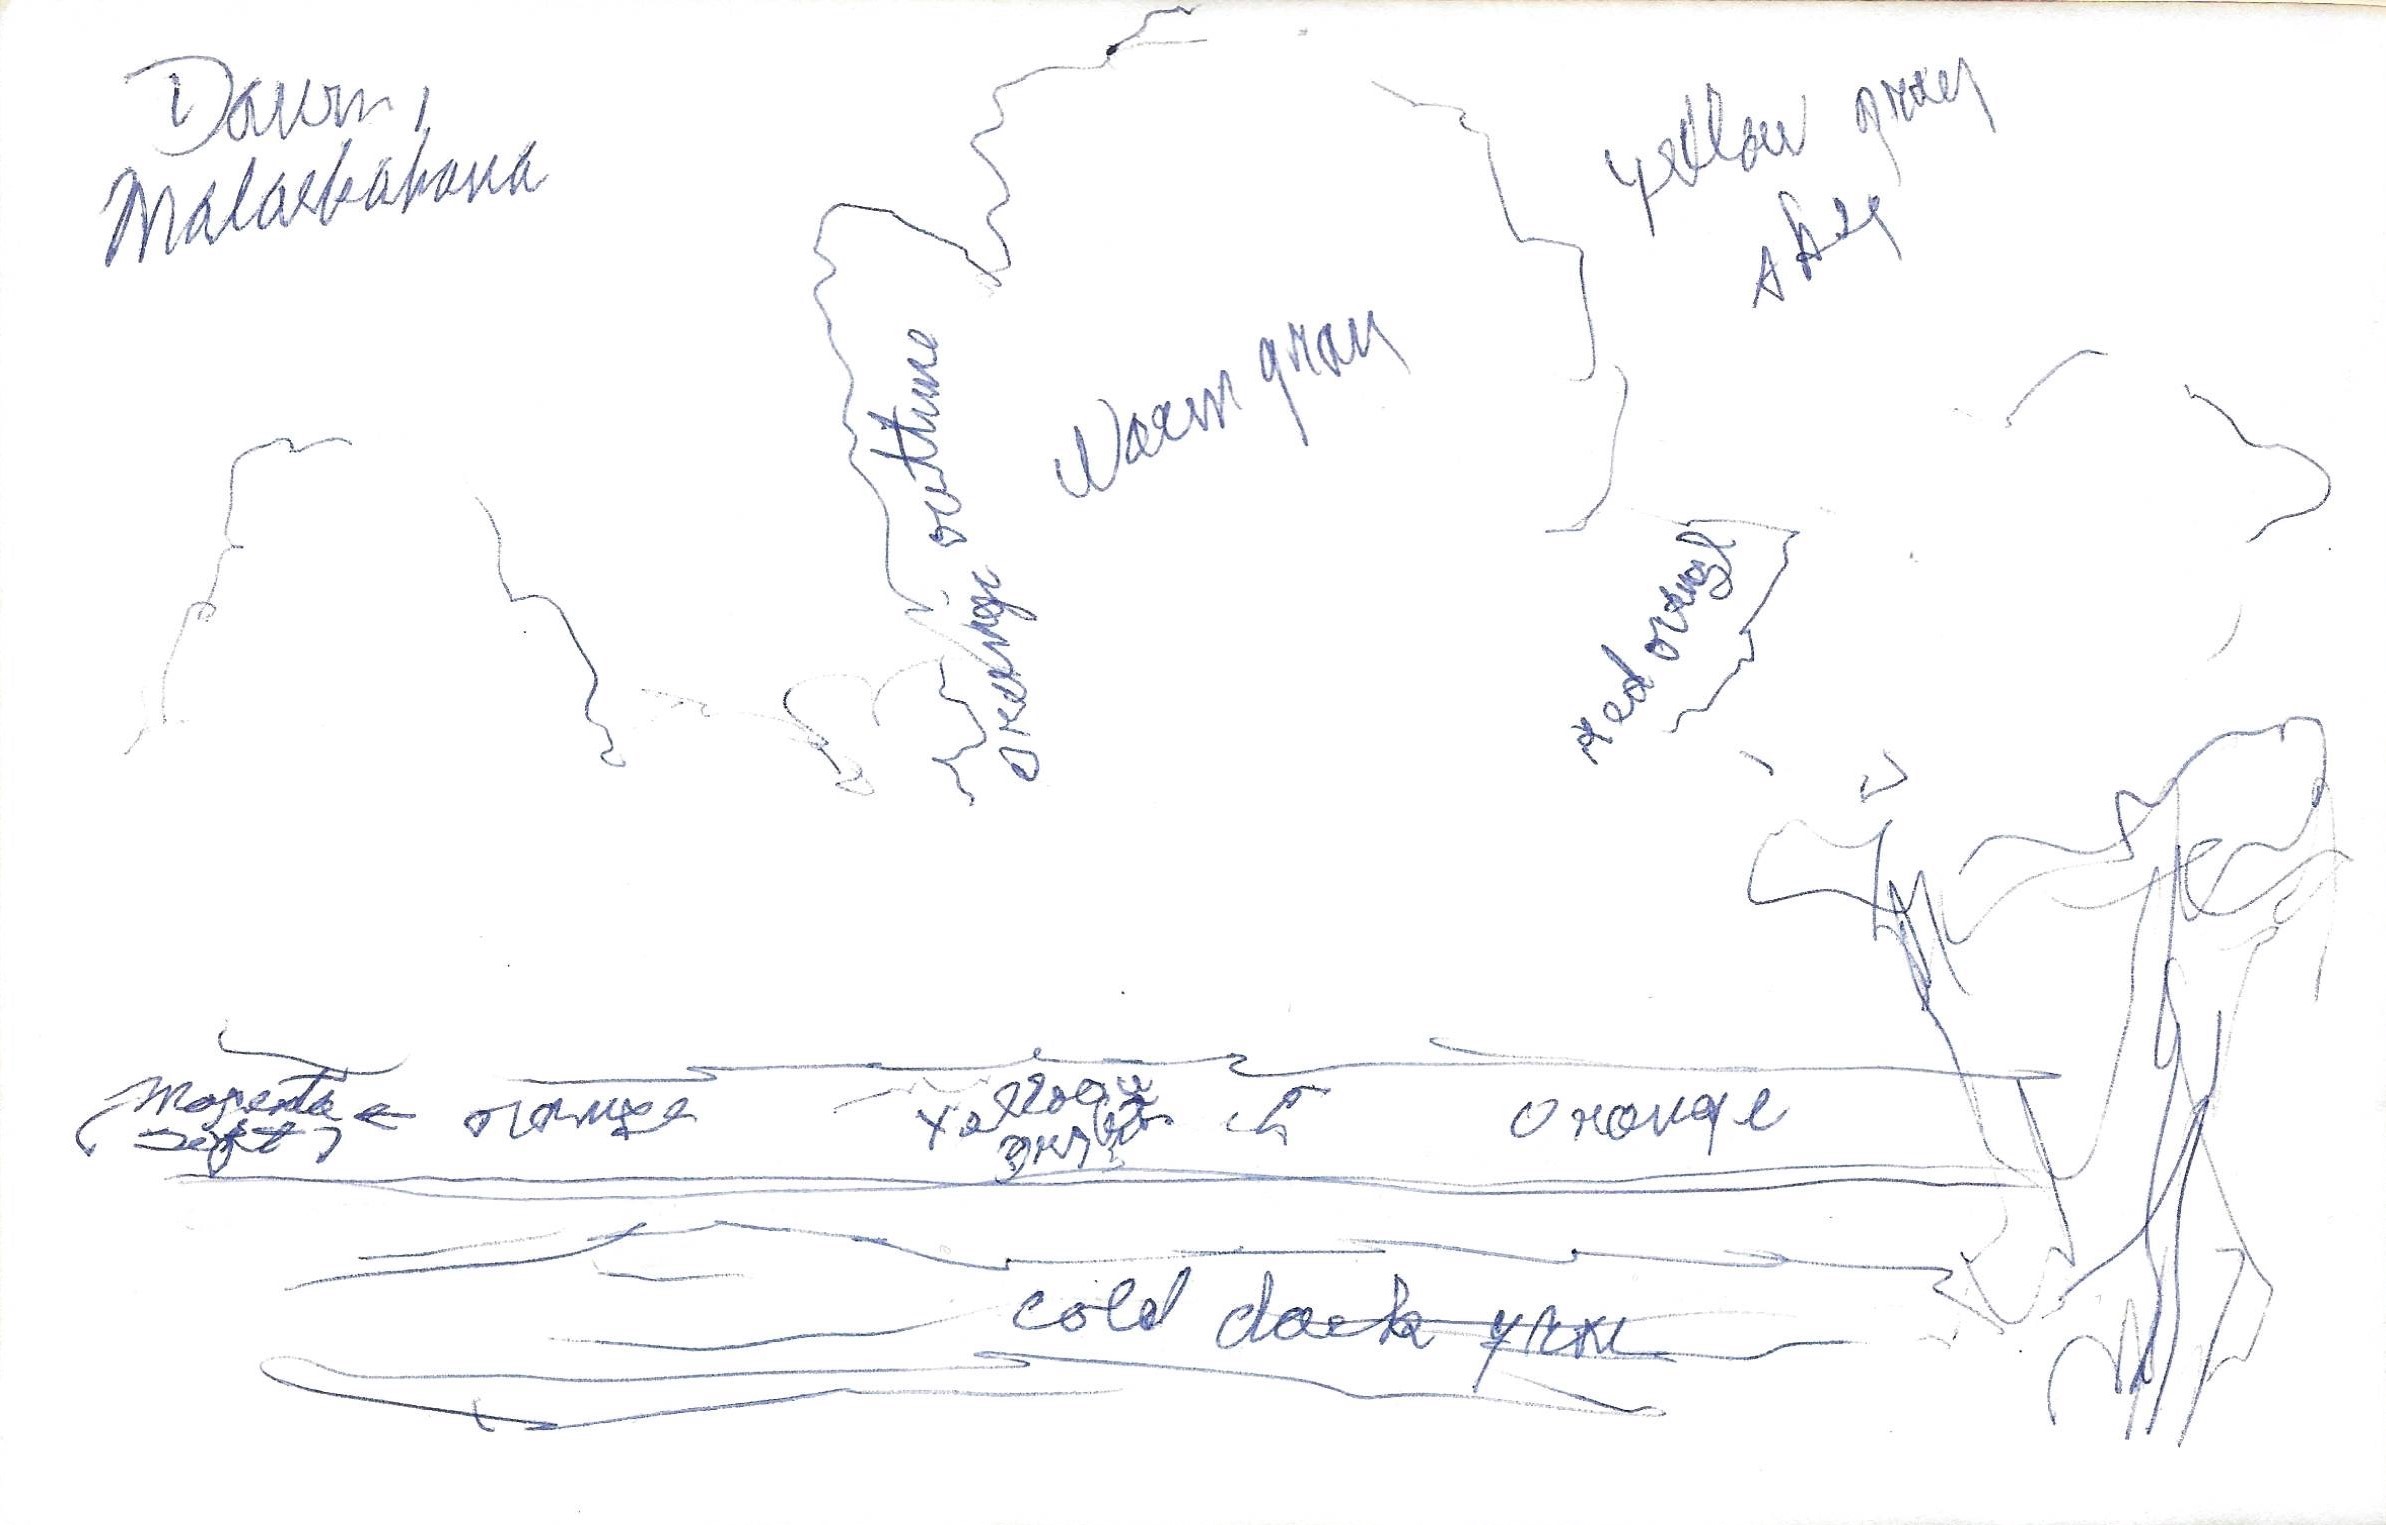 Dawn,
Malaebahona
yellow gray
sky
orange outline
Warm gray
red orange
magenta
(soft)
orange
yellow
gray
orange
cold dark gray